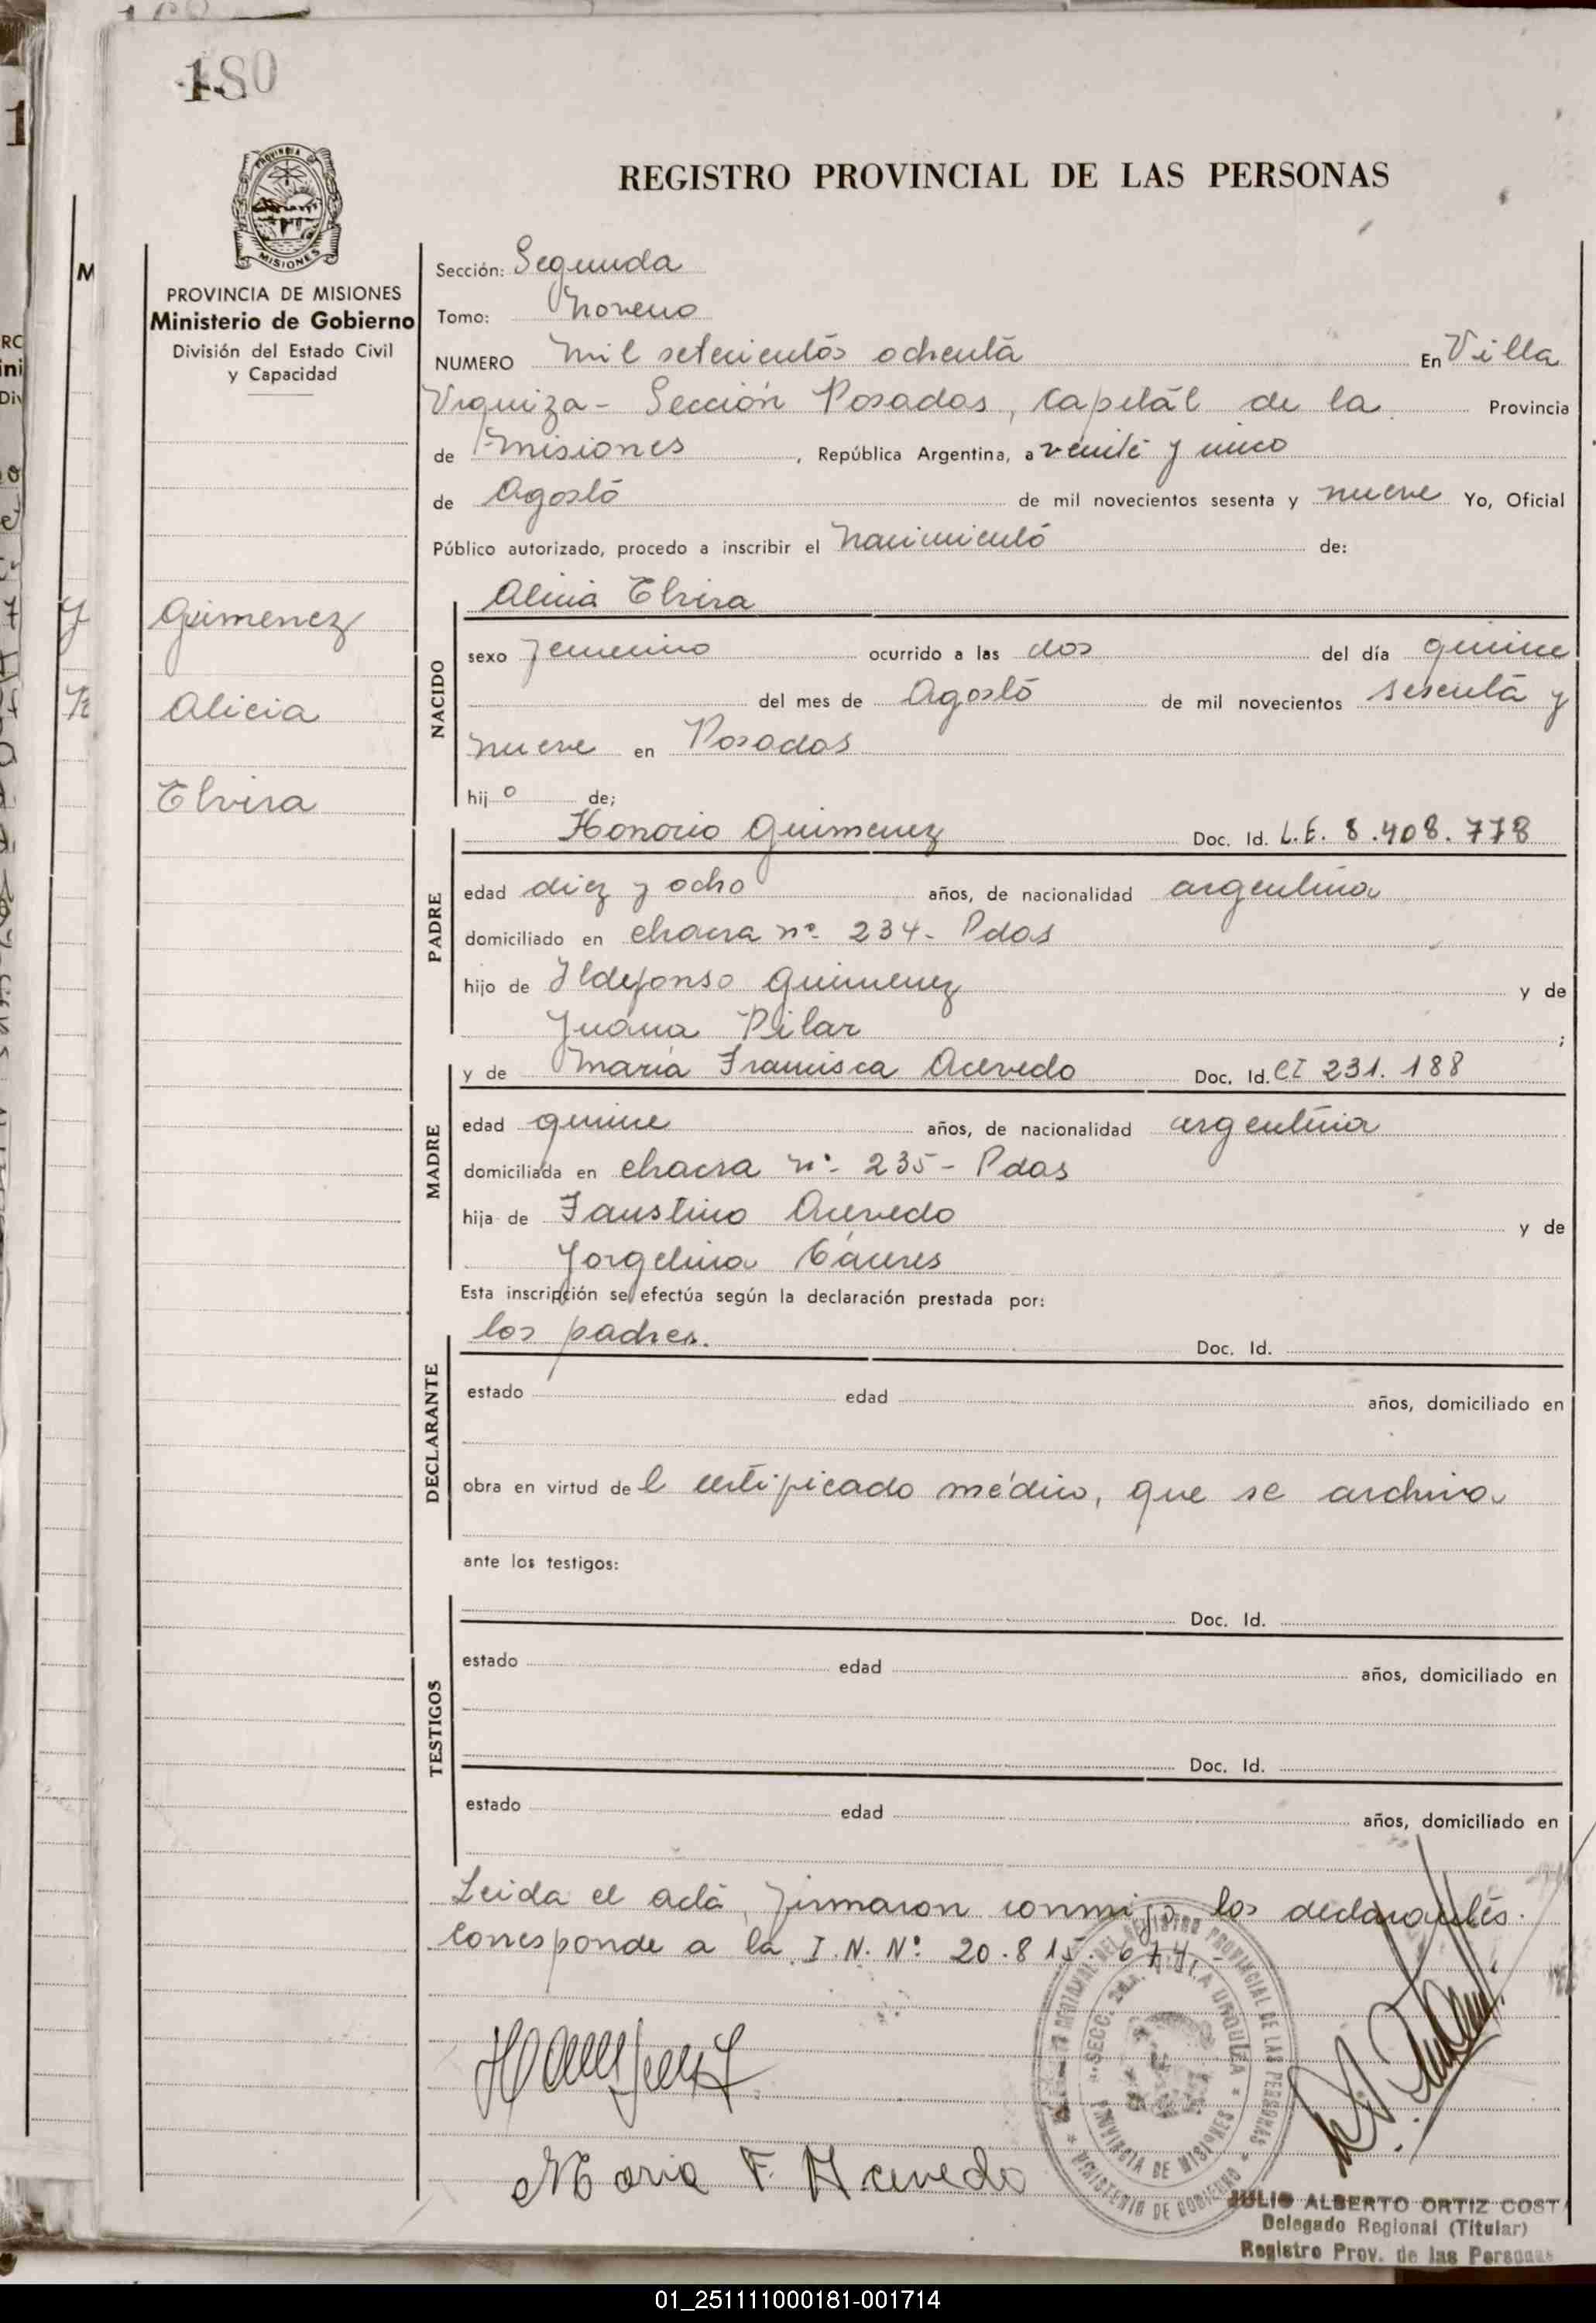 180
REGISTRO PROVINCIAL DE LAS PERSONAS
PROVINCIA DE MISIONES
MISIONES
PROVINCIA DE MISIONES
Ministerio de Gobierno
División del Estado Civil
y Capacidad
Gimenez
Alicia
Elvira
Sección: Segunda
Tomo: Noveno
NUMERO mil setecientos ochenta En Villa
Urquiza - Sección Posadas, Capital de la Provincia
de Misiones, República Argentina, a veinte y uno
de Agosto de mil novecientos sesenta y nueve Yo, Oficial
Público autorizado, procedo a inscribir el Nacimiento de:
NACIDO
Alicia Elvira
sexo femenino ocurrido a las dos del día quince
del mes de Agosto de mil novecientos sesenta y
nueve en Posadas
hij o de;
PADRE
Honorio Gimenez Doc. Id. L.E. 8.408.778
edad diez y ocho años, de nacionalidad argentina
domiciliado en chacra nº 234- Pdas
hijo de Ildefonso Gimenez y de
Juana Pilar ;
MADRE
y de María Francisca Acevedo Doc. Id. CI 231.188
edad quince años, de nacionalidad argentina
domiciliada en chacra nº- 235- Pdas
hija de Faustino Acevedo y de
Jorgelina Cáceres
Esta inscripción se efectúa según la declaración prestada por:
DECLARANTE
los padres. Doc. Id.
estado edad años, domiciliado en
obra en virtud de l certificado médico, que se archiva
ante los testigos:
TESTIGOS
Doc. Id.
estado edad años, domiciliado en
Doc. Id.
estado edad años, domiciliado en
Leida el acta, firmaron conmigo los declarantes.
Corresponde a la I.N. Nº 20.815.674.
Maria F. Acevedo
REGISTRO PROVINCIAL DE LAS PERSONAS
MINISTERIO DE GOBIERNO
SECC. 2da. VILLA URQUIZA
PROVINCIA DE MISIONES
JULIO ALBERTO ORTIZ COSTA
Delegado Regional (Titular)
Registro Prov. de las Personas
01_251111000181-001714